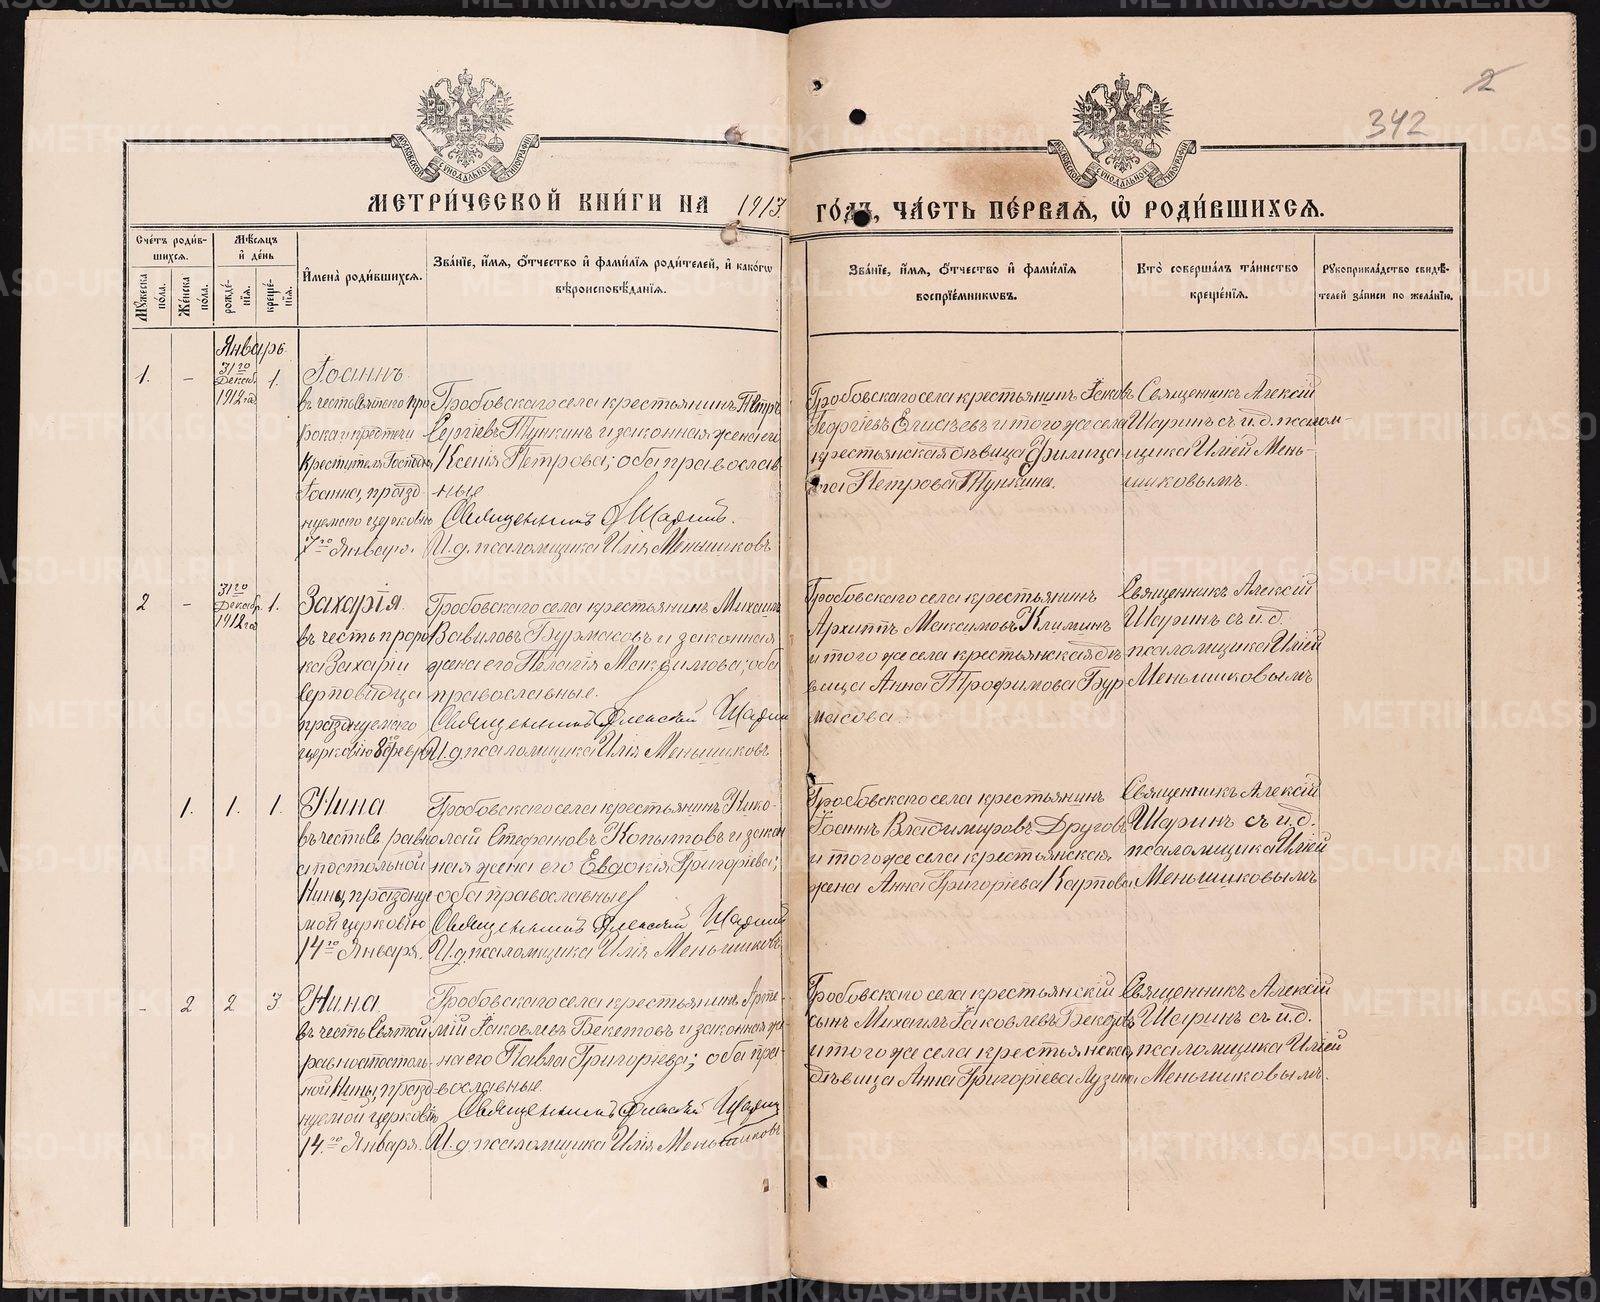 2
342
МОСКОВСКОЙ СѴНОДАЛЬНОЙ ТИПОГРАФІИ
МОСКОВСКОЙ СѴНОДАЛЬНОЙ ТИПОГРАФІИ
МЕТРИ́ЧЕСКОЙ КНИ́ГИ НА 1913 ГО́ДЪ, ЧА́СТЬ ПЕ́РВАѦ, Ѡ҆ РОДИ́ВШИХСѦ.
Сче́тъ роди́в-
шихсѧ.
Мꙋ́жеска по́ла.
Же́нска по́ла.
Мѣ́сѧцъ и҆ де́нь
рожде́-
нїѧ.
креще́-
нїѧ.
И҆мена̀ роди́вшихсѧ.
Зва́нїе, и҆́мѧ, ѻ҆́тчество и҆ фами́лїѧ роди́телей, и҆ како́гѡ
вѣроисповѣ́данїѧ.
Зва́нїе, и҆́мѧ, ѻ҆́тчество и҆ фами́лїѧ
воспрїе́мникѡвъ.
Кто̀ соверша́лъ та́инство
креще́нїѧ.
Рꙋкоприкла́дство свидѣ́-
телей за́писи по жела́нїю.
Январь
1. - 31го Декаб. 1912 год 1.
Іоаннъ
въ честь Святаго Про
рока и предтечи
Крестителя Господня
Іоанна, празд
нуемаго церковію
7го Января.
Гробовскаго села крестьянинъ Петръ
Сергіевъ Тункинъ и законная жена его
Ксенія Петрова; оба православ
ные
Священникъ А Шаринъ.
И. д. псаломщика Илія Меньшиковъ
Гробовскаго села крестьянинъ Іаковъ
Георгіевъ Елисѣевъ и того же села
крестьянская дѣвица Филица
та Петрова Тункина.
Священникъ Алексій
Шаринъ съ и. д. псалом-
щика Иліей Мень-
шиковымъ.
2 - 31го Декабр. 1912 год 1.
Захарія
въ честь проро
ка Захаріи
Серповидца
празднуемаго
церковію 8го февр
Гробовскаго села крестьянинъ Михаилъ
Вавиловъ Бурмасовъ и законная
жена его Пелагія Максимова; оба
православные.
Священникъ Алексій Шаринъ
И. д. псаломщика Илія Меньшиковъ
Гробовскаго села крестьянинъ
Архиппъ Максимовъ Климинъ
и того же села крестьянская дѣ
вица Анна Трофимова Бур
масова.
Священникъ Алексій
Шаринъ съ и. д.
псаломщика Иліей
Меньшиковымъ
1. 1. 1.
Нина
въ честь Св равно
апостольной
Нины, праздну
мой церковію
14го Января.
Гробовскаго села крестьянинъ Нико-
лай Стефановъ Копытовъ и закон
ная жена его Евдокія Григоріева;
оба православные
Священникъ Алексій Шаринъ
И. д. псаломщика Илія Меньшиковъ
Гробовскаго села крестьянинъ
Іоаннъ Владимировъ Друговъ
и того же села крестьянская
жена Анна Григоріева Карпова
Священникъ Алексій
Шаринъ съ и. д.
псаломщика Иліей
Меньшиковымъ
- 2 2 3
Нина
въ честь Святой
равноапостоль-
ной Нины, празд-
нуемой церковію
14го Января.
Гробовскаго села крестьянинъ Арте-
мій Іаковлевъ Бекетовъ и законная же-
на его Павла Григоріева; оба пра-
вославные
Священникъ Алексій Шаринъ
И. д. псаломщика Илія Меньшиковъ
Гробовскаго села крестьянскій
сынъ Михаилъ Іаковлевъ Бекетовъ
и того же села крестьянская
дѣвица Анна Григоріева Лузина
Священникъ Алексій
Шаринъ съ и. д.
псаломщика Иліей
Меньшиковымъ.
METRIKI.GASO-URAL.RU